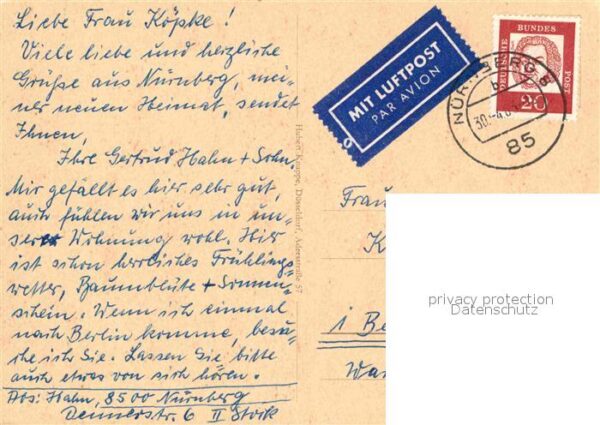 Liebe Frau Köpke!
Viele liebe und herzliche
Grüße aus Nürnberg, mei=
ner neuen Heimat, sendet
Ihnen,
Ihre Gertrud Hahn + Sohn.
Mir gefällt es hier sehr gut,
auch fühlen wir uns in un=
serer Wohnung wohl. Hier
ist schon herrliches Frühlings=
wetter, Baumblüte + Sonnen=
schein. Wenn ich einmal
nach Berlin komme, besu=
che ich Sie. Lassen Sie bitte
auch etwas von sich hören.
Abs: Hahn, 8500 Nürnberg
Dennerstr. 6 II Stock
Hubert Knuppe, Düsseldorf, Adersstraße 57
MIT LUFTPOST
PAR AVION
DEUTSCHE
BUNDES
POST
20
NÜRNBERG 2
85
Frau
K
i Be
privacy protection
Datenschutz